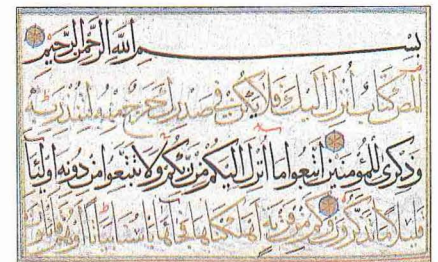 بسم الله الرحمن الرحيم
المص كتاب انزل اليك فلا يكن في صدرك حرج منه لتنذر به
وذكرى للمؤمنين اتبعوا ما انزل اليكم من ربكم ولا تتبعوا من دونه اولياء
قليلا ما تذكرون وكم من قرية اهلكناها فجاءها باسنا بياتا او هم قائلون